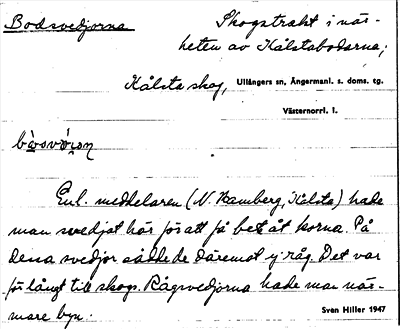 Bodsvedjorna
Skogstrakt i när-
heten av Kålstabodarna;
Kålsta skog, Ullångers sn, Ångermanl. s. doms. tg.
Västernorrl. l.
Enl. meddelaren (N. Hamberg, Kålsta) hade
man svedjat här för att få bete åt korna. På
dessa svedjor sådde de däremot ej råg. Det var
för långt till skogs. Rågsvedjorna hade man när-
mare byn.
Sven Hiller 1947